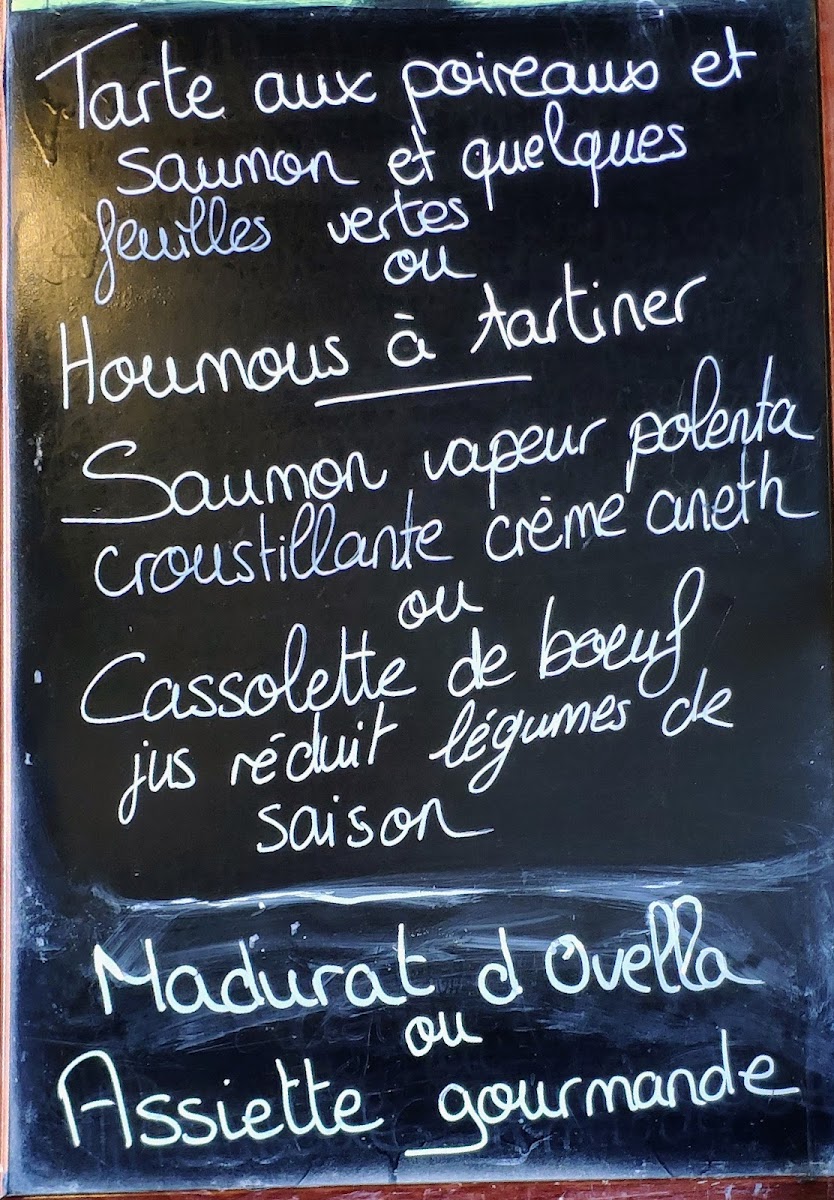 Tarte aux poireaux et
saumon et quelques
feuilles vertes
ou
Houmous à tartiner
Saumon vapeur polenta
croustillante crème aneth
ou
Cassolette de boeuf
jus réduit légumes de
saison
Madurat d Ovella
ou
Assiette gourmande